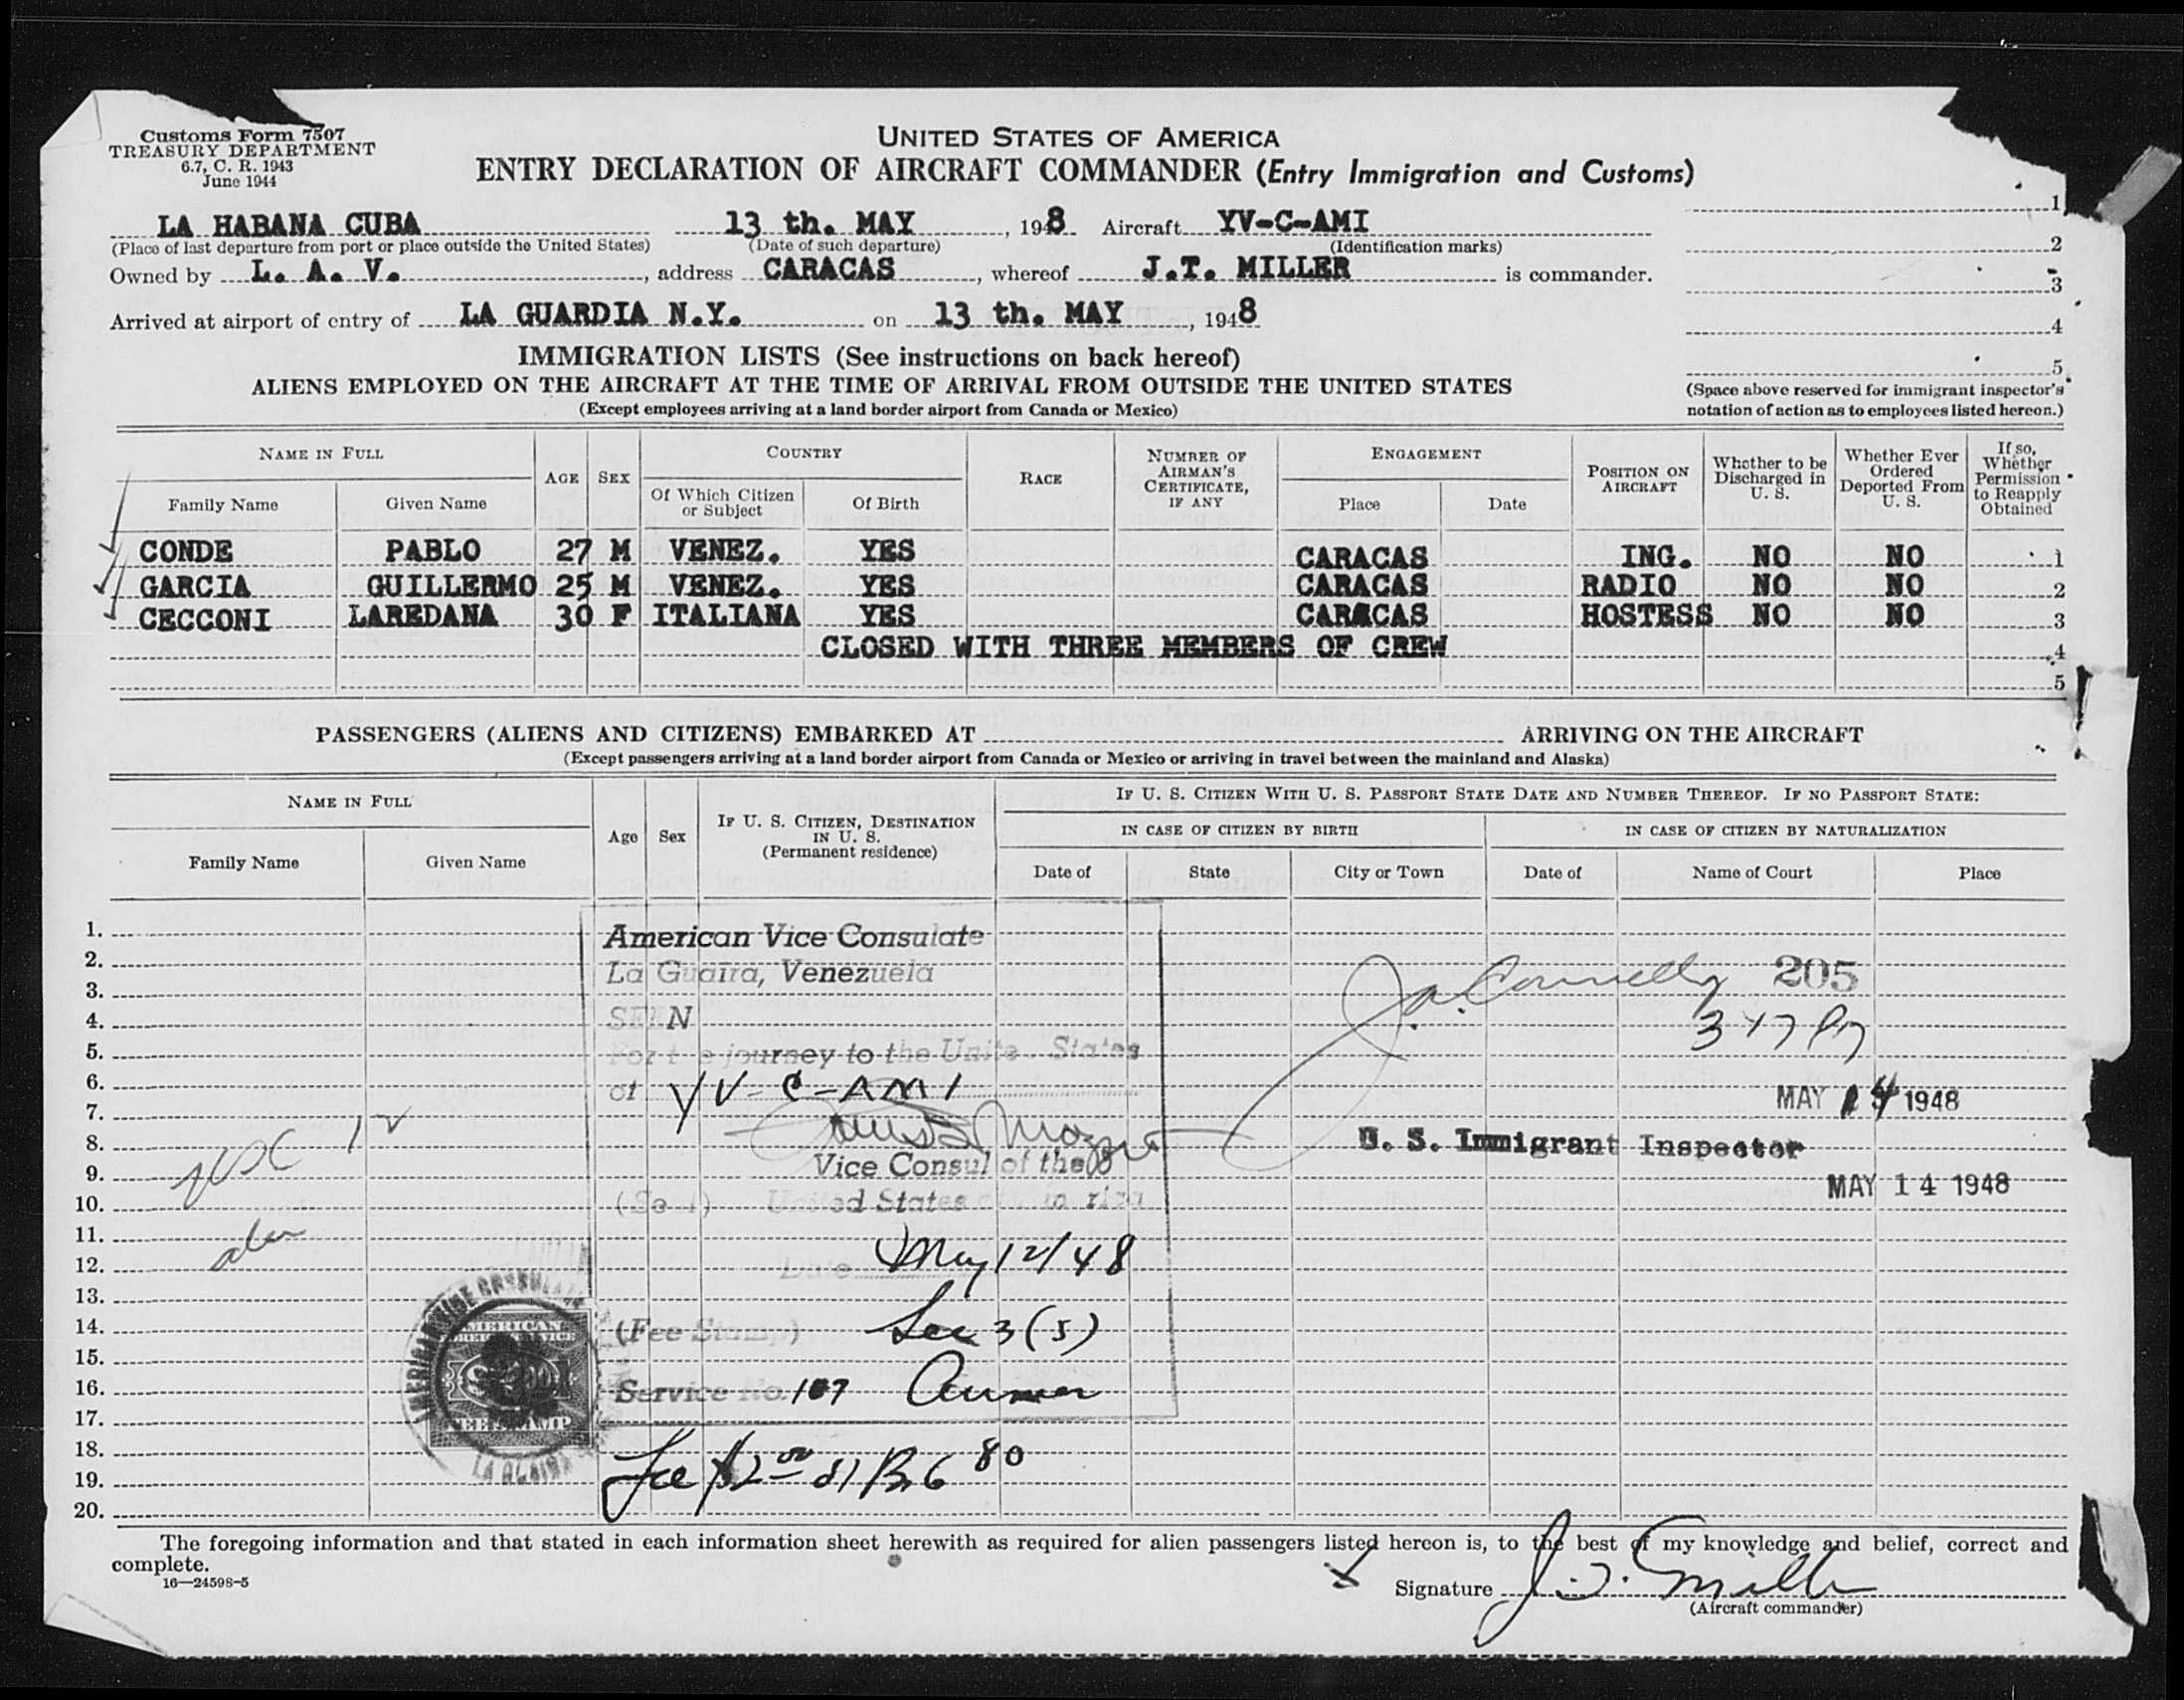 Customs Form 7507
TREASURY DEPARTMENT
6.7, C. R. 1943
June 1944
UNITED STATES OF AMERICA
ENTRY DECLARATION OF AIRCRAFT COMMANDER (Entry Immigration and Customs)
LA HABANA CUBA 13 th. MAY, 1948 Aircraft YV-C-AMI
(Place of last departure from port or place outside the United States) (Date of such departure) (Identification marks)
Owned by L. A. V., address CARACAS, whereof J.T. MILLER is commander.
Arrived at airport of entry of LA GUARDIA N.Y. on 13 th. MAY, 1948
1
2
3
4
5
(Space above reserved for immigrant inspector's
notation of action as to employees listed hereon.)
IMMIGRATION LISTS (See instructions on back hereof)
ALIENS EMPLOYED ON THE AIRCRAFT AT THE TIME OF ARRIVAL FROM OUTSIDE THE UNITED STATES
(Except employees arriving at a land border airport from Canada or Mexico)
NAME IN FULL
Family Name Given Name
AGE SEX
COUNTRY
Of Which Citizen
or Subject
Of Birth
RACE
NUMBER OF
AIRMAN'S
CERTIFICATE,
IF ANY
ENGAGEMENT
Place Date
POSITION ON
AIRCRAFT
Whether to be
Discharged in
U. S.
Whether Ever
Ordered
Deported From
U. S.
If so,
Whether
Permission
to Reapply
Obtained
CONDE PABLO 27 M VENEZ. YES CARACAS ING. NO NO 1
GARCIA GUILLERMO 25 M VENEZ. YES CARACAS RADIO NO NO 2
CECCONI LAREDANA 30 F ITALIANA YES CARACAS HOSTESS NO NO 3
CLOSED WITH THREE MEMBERS OF CREW 4
5
PASSENGERS (ALIENS AND CITIZENS) EMBARKED AT ARRIVING ON THE AIRCRAFT
(Except passengers arriving at a land border airport from Canada or Mexico or arriving in travel between the mainland and Alaska)
NAME IN FULL
Family Name Given Name
Age Sex
IF U. S. CITIZEN, DESTINATION
IN U. S.
(Permanent residence)
IF U. S. CITIZEN WITH U. S. PASSPORT STATE DATE AND NUMBER THEREOF. IF NO PASSPORT STATE:
IN CASE OF CITIZEN BY BIRTH IN CASE OF CITIZEN BY NATURALIZATION
Date of State City or Town Date of Name of Court Place
1.
2.
3.
4.
5.
6.
7.
8.
9.
10.
11.
12.
13.
14.
15.
16.
17.
18.
19.
20.
American Vice Consulate
La Guaira, Venezuela
SEEN
For the journey to the United States
of YV-C-AMI
Vice Consul of the
United States
(Seal)
Date May 12/48
(Fee Stamp) Sec 3(5)
Service No. 107
Fee $2 00 B 6 80
AMERICAN
FEE STAMP
J. A. Connelly 205
MAY 14 1948
U. S. Immigrant Inspector
MAY 14 1948
The foregoing information and that stated in each information sheet herewith as required for alien passengers listed hereon is, to the best of my knowledge and belief, correct and
complete.
16—24598-5
Signature J. T. Miller
(Aircraft commander)